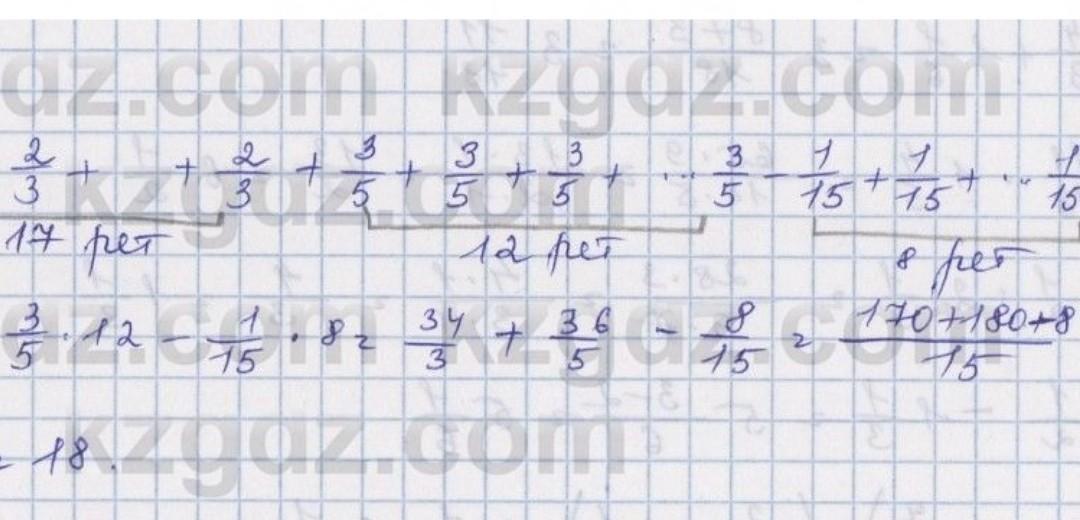 2/3 + + 2/3 + 3/5 + 3/5 + 3/5 + ... 3/5 - 1/15 + 1/15 + ... 1/15
17 рет 12 рет 8 рет
3/5 · 12 - 1/15 · 8 = 34/3 + 36/5 - 8/15 = 170+180+8/15
= 18.
kzgdz.com